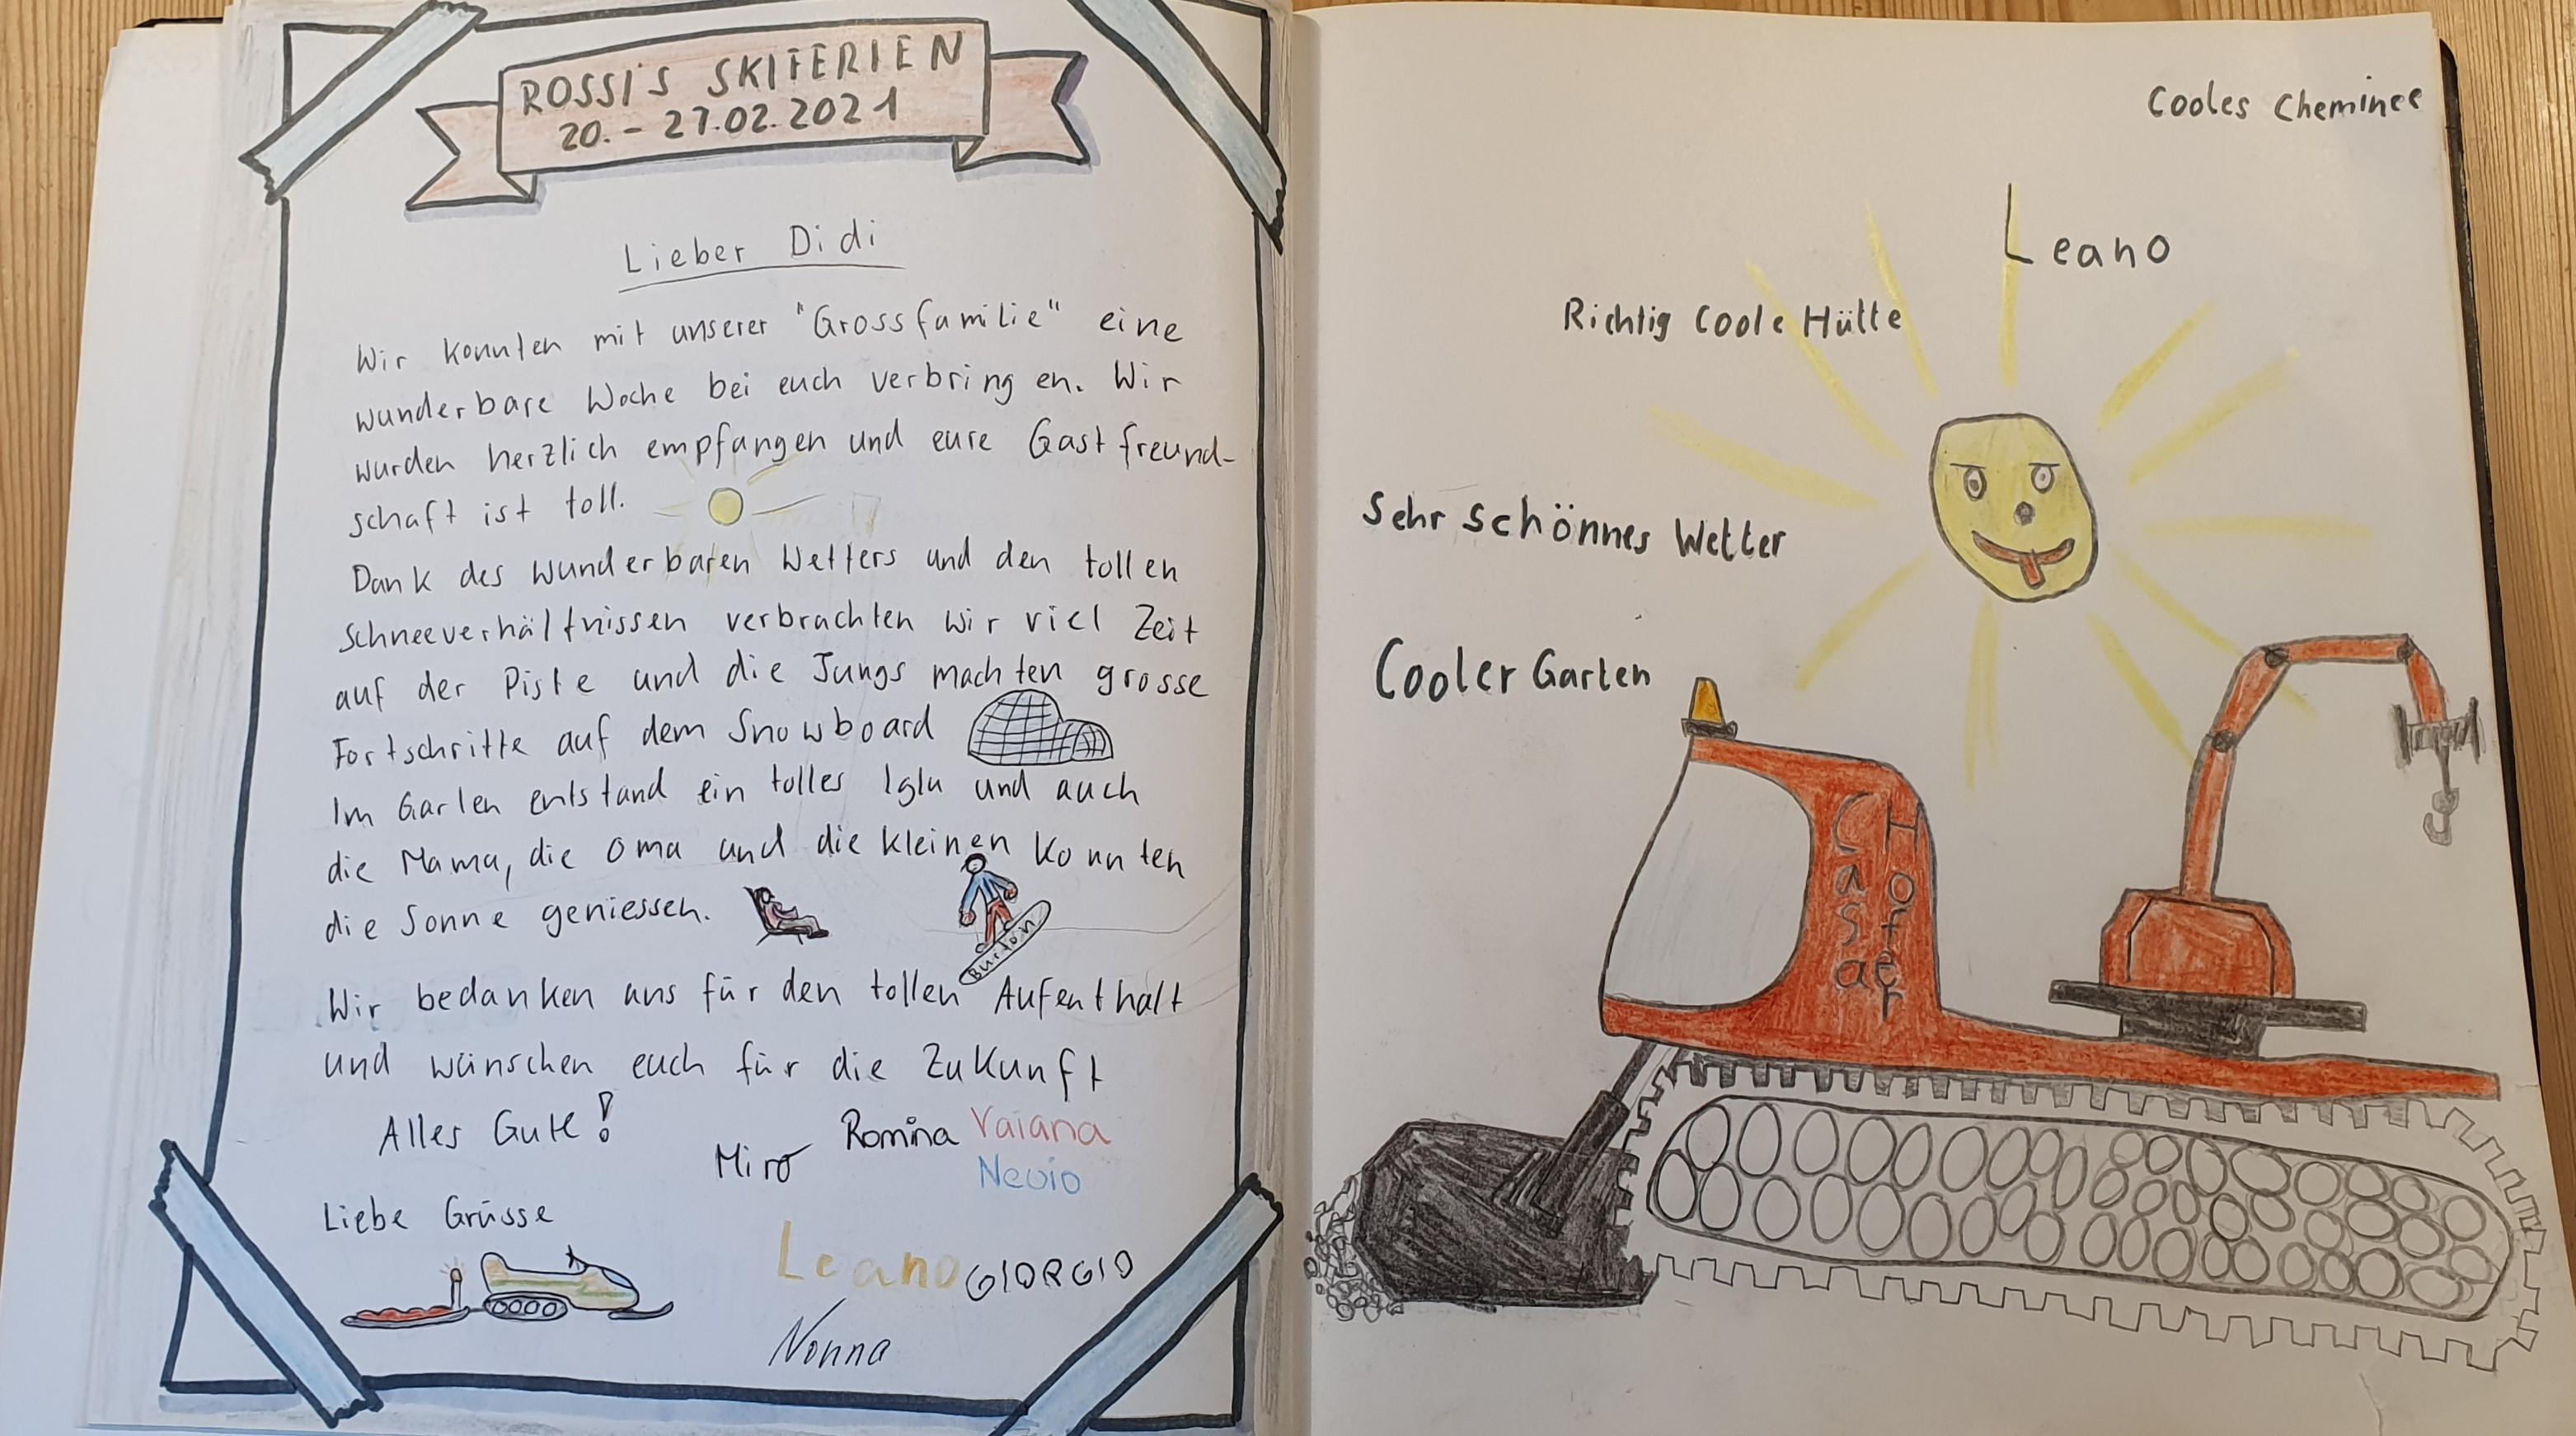 ROSSI'S SKIFERIEN
20. - 27.02.2021
Lieber Didi
Wir konnten mit unserer "Grossfamilie" eine
wunderbare Woche bei euch verbringen. Wir
wurden herzlich empfangen und eure Gastfreund-
schaft ist toll.
Dank des wunderbaren Wetters und den tollen
Schneeverhältnissen verbrachten wir viel Zeit
auf der Piste und die Jungs machten grosse
Fortschritte auf dem Snowboard
Im Garten entstand ein tolles Iglu und auch
die Mama, die Oma und die kleinen konnten
die Sonne geniessen.
Burton
Wir bedanken uns für den tollen Aufenthalt
und wünschen euch für die Zukunft
Alles Gute!
Miro Romina Vaiana
Nevio
Liebe Grüsse
Leano GIORGIO
Nonna
Cooles Cheminee
Leano
Richtig Coole Hütte
Sehr schönnes Wetter
Cooler Garten
Casa
Hofer